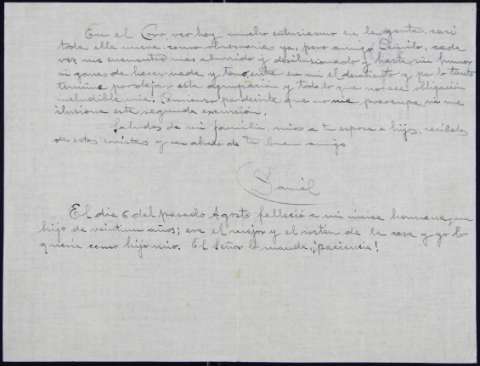 En el Coro veo hoy mucho entusiasmo en la gente, casi
toda ella nueva como observaría ya, pero amigo Benito, cada
vez me encuentro más aburrido y desilusionado y hasta sin humor
ni ganas de hacer nada y tengo en el y por lo tanto
termine por dejar esta agrupación y todo lo que no sea obligación
ineludible mía. que no me preocupa ni me
ilusiona esta segunda excursión.
Saludos de mi familia, míos a tu esposa e hijos, recíbelos
de estos coristas y un abrazo de tu buen amigo
Daniel
El día 6 del pasado Agosto falleció a mi única hermana, un
hijo de veintiun años; era el mejor y el sostén de la casa y yo lo
quería como hijo mío. El Señor lo manda, ¡paciencia!